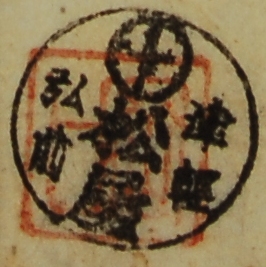 津軽
十
松屋
弘前